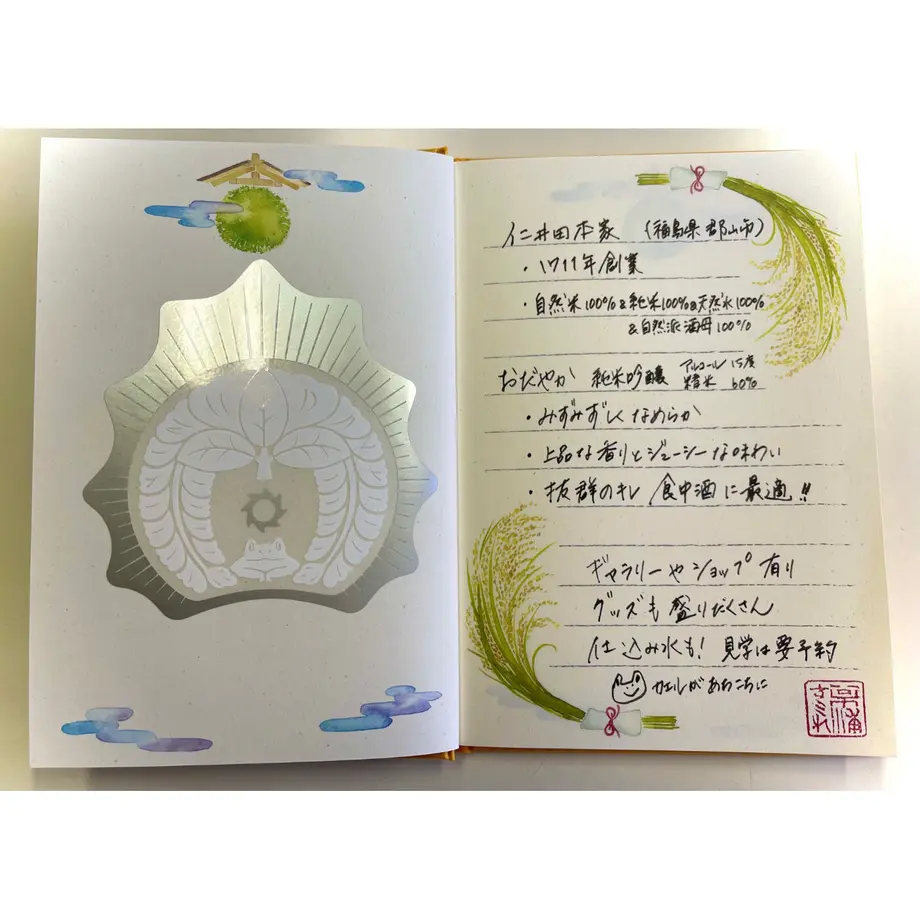 仁井田本家 (福島県郡山市)
・1711年創業
・自然米100%&純米100%&天然水100%
&自然派酒母100%
おだやか 純米吟醸 アルコール 15度
精米 60%
・みずみずしくなめらか
・上品な香りとジューシーな味わい
・抜群のキレ 食中酒に最適!!
ギャラリーやショップ有り
グッズも盛りだくさん
仕込み水も! 見学は要予約
カエルがあちこちに